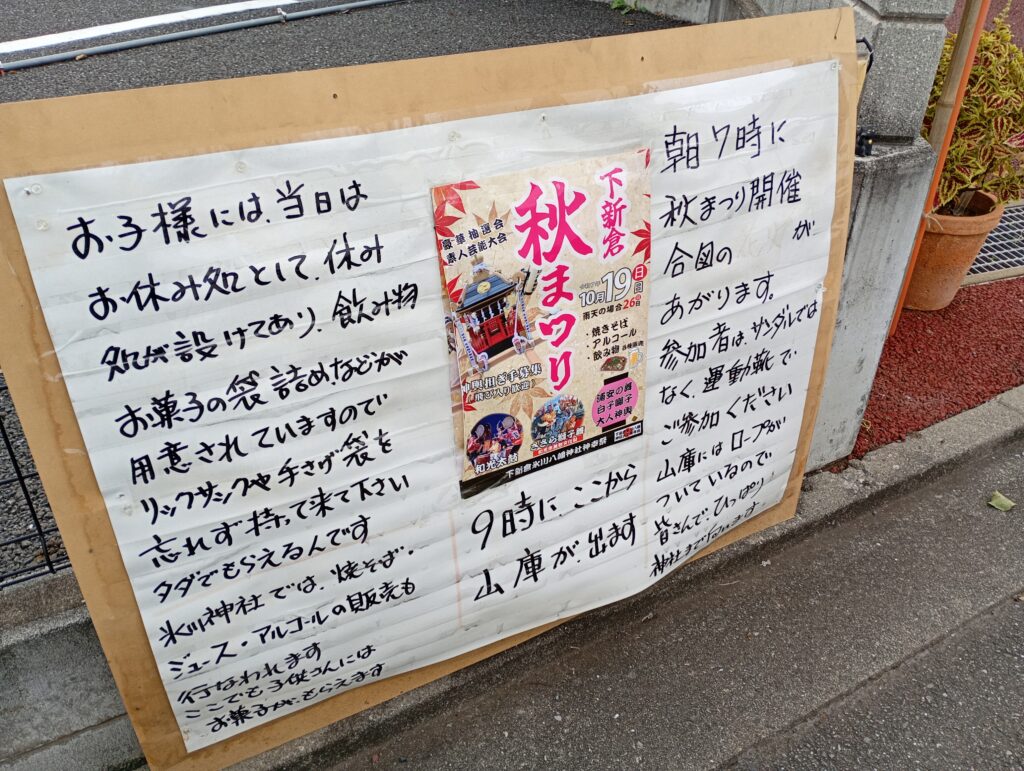 朝7時に
秋まつり開催
合図の が
あがります。
参加者は、サンダルでは
なく、運動靴で
ご参加ください
山庫にはロープが
ついているので
皆さんで、ひっぱり
神社まで向います
9時に、ここから
山庫が、出ます
お子様には、当日は
お休み処として、休み
処が設けてあり、飲み物
お菓子の袋詰め、などが
用意されていますので
リックサックや手さげ袋を
忘れず持って来て下さい
タダでもらえるんです
氷川神社では、焼そば・
ジュース・アルコールの販売も
行なわれます
ここでも子供さんには
お菓子が、もらえます
下新倉
秋まつり
豪華抽選会
素人芸能大会
10月19日
雨天の場合26日
・焼きそば
・アルコール
・飲み物 各種販売
神輿担ぎ手募集
(飛び入り歓迎)
浦安の舞
白子囃子
大人神輿
和光太鼓
ささら獅子舞
下新倉氷川八幡神社神幸祭